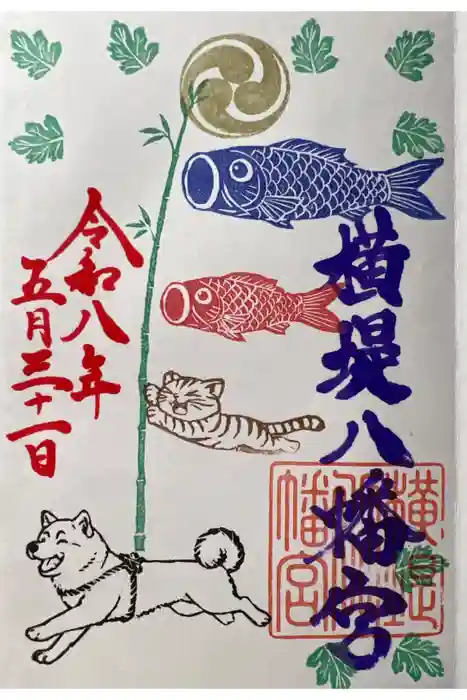 横堤八幡宮
横堤
八
幡宮
令和八年
五月三十一日